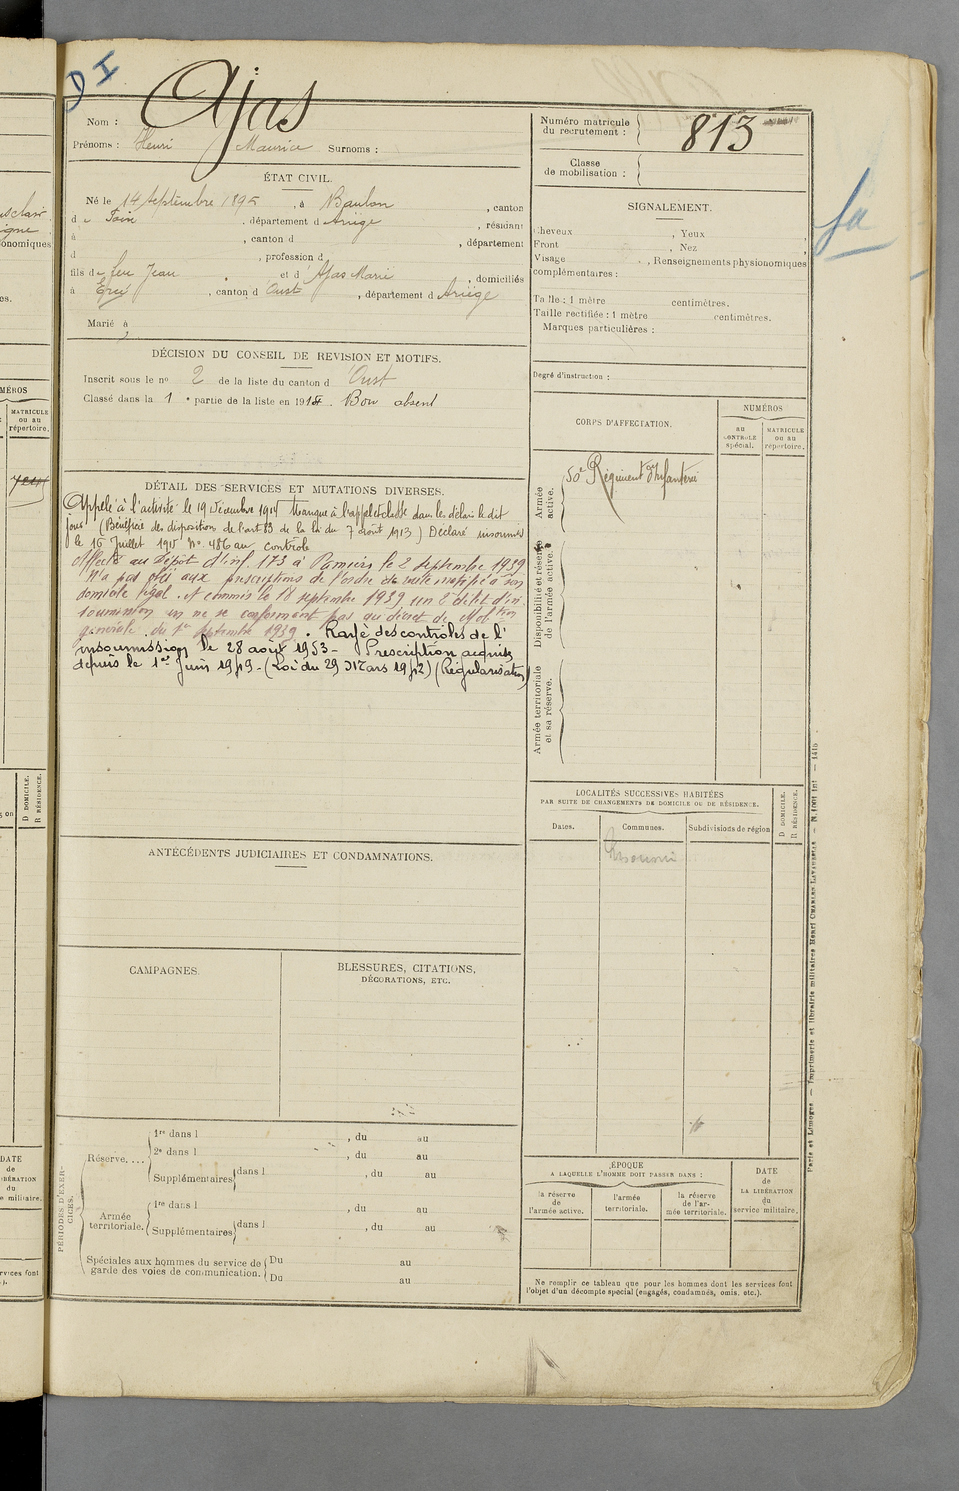 D I
Nom : Ajas
Prénoms : Henri Maurice Surnoms :
Numéro matricule
du recrutement : 813
Classe
de mobilisation :
ÉTAT CIVIL.
Né le 14 Septembre 1895, à Baulou, canton
d e Foix, département d Ariège, résidant
à , canton d , département
d , profession d
fils de feu Jean et d Ajas Marie, domiciliés
à Ercé, canton d Oust, département d Ariège
Marié à
SIGNALEMENT.
Cheveux , Yeux ,
Front , Nez
Visage , Renseignements physionomiques
complémentaires :
Taille : 1 mètre centimètres.
Taille rectifiée : 1 mètre centimètres.
Marques particulières :
Degré d'instruction :
DÉCISION DU CONSEIL DE REVISION ET MOTIFS.
Inscrit sous le no 2 de la liste du canton d Oust
Classé dans la 1 e partie de la liste en 191 . Bon absent
DÉTAIL DES SERVICES ET MUTATIONS DIVERSES.
Appelé à l'activité le 19 Décembre 1914 Manque à l'appel dans les délais le dit
jour (Bénéficie des dispositions de l'art 83 de la loi du 7 août 1913) Déclaré insoumis
le 15 Juillet 1915 No. 486 au contrôle
Affecté au Dépôt d'inf. 173 à Pamiers le 2 septembre 1939
N'a pas obéi aux prescriptions de l'ordre de route notifié à son
domicile légal. et commis le 18 septembre 1939 un 2e délit d'in
soumission en ne se conformant pas au décret de Mobtion
générale du 1er septembre 1939. Rayé des contrôles de l'
insoumission le 28 août 1953 - Prescription acquise
depuis le 1er Juin 1949 - (Loi du 29 Mars 1942) (Régularisation)
CORPS D'AFFECTATION.
NUMÉROS
au
CONTROLE
spécial.
MATRICULE
ou au
répertoire.
Armée
active.
50e Régiment d'Infanterie
Disponibilité et réserve
de l'armée active.
Armée territoriale
et sa réserve.
LOCALITÉS SUCCESSIVES HABITÉES
PAR SUITE DE CHANGEMENTS DE DOMICILE OU DE RÉSIDENCE.
Dates. Communes. Subdivisions de région
D DOMICILE.
R RÉSIDENCE.
Insoumis
ANTÉCÉDENTS JUDICIAIRES ET CONDAMNATIONS.
CAMPAGNES.
BLESSURES, CITATIONS,
DÉCORATIONS, ETC.
PÉRIODES D'EXER-
CICES.
Réserve....
1re dans l , du au
2e dans l , du au
Supplémentaires dans l , du au
Armée
territoriale.
1re dans l , du au
Supplémentaires dans l , du au
Spéciales aux hommes du service de
garde des voies de communication.
Du au
Du au
ÉPOQUE
A LAQUELLE L'HOMME DOIT PASSER DANS :
la réserve
de
l'armée active.
l'armée
territoriale.
la réserve
de l'ar-
mée territoriale.
DATE
de
LA LIBÉRATION
du
service militaire.
Ne remplir ce tableau que pour les hommes dont les services font
l'objet d'un décompte spécial (engagés, condamnés, omis, etc.).
Paris et Limoges. — Imprimerie et librairie militaires Henri CHARLES-LAVAUZELLE